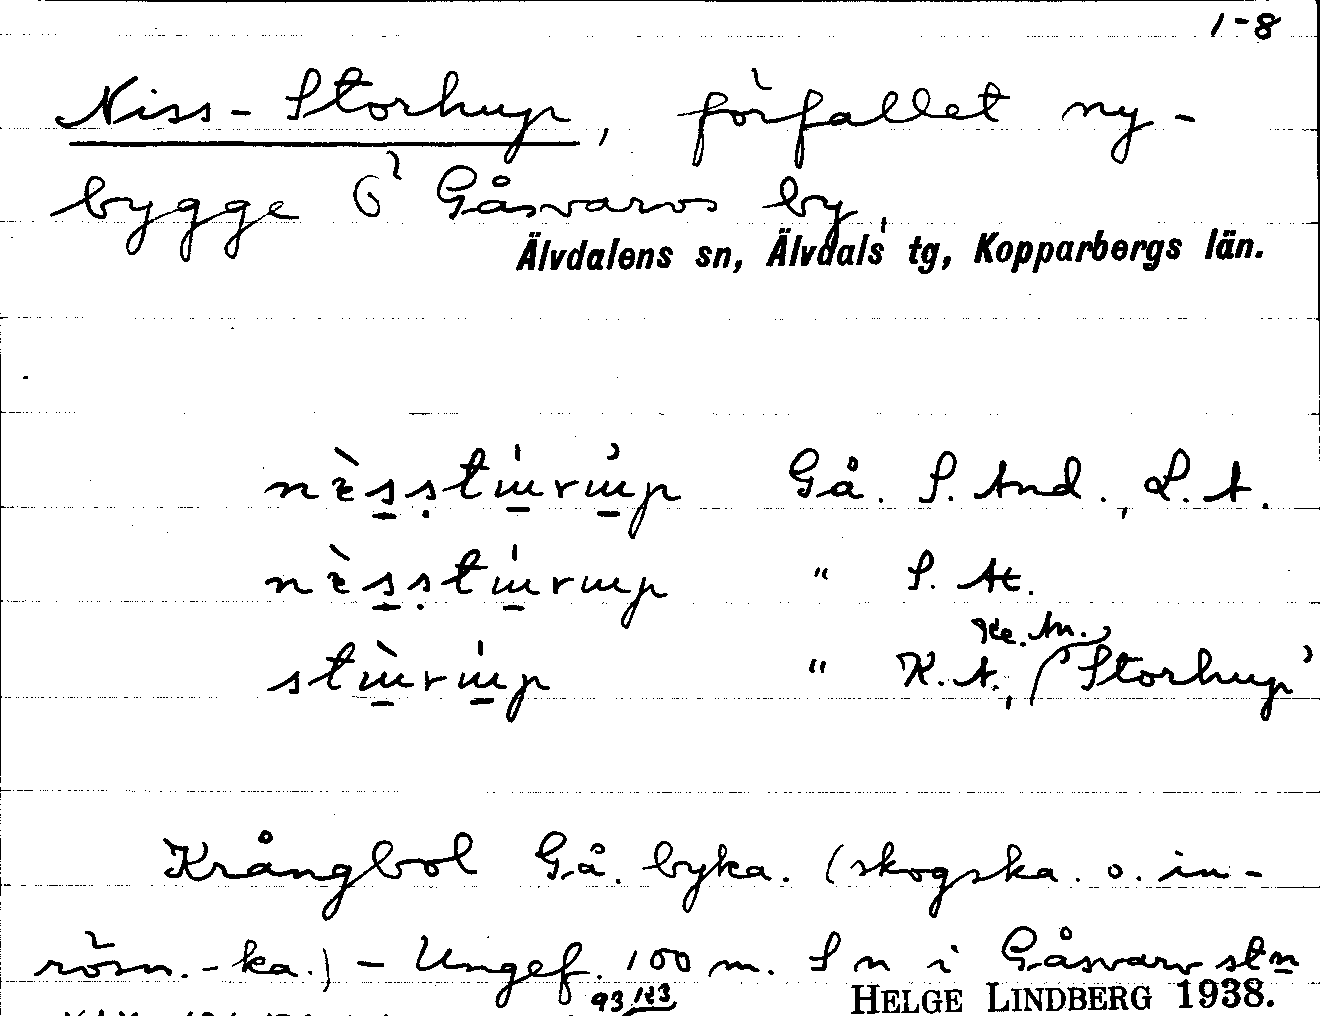 1-8
Niss-Storhup, förfallet ny-
bygge Ö Gåsvarvs by,
Älvdalens sn, Älvdals tg, Kopparbergs län.
Gå. S. And., L. A.
" S. At.
Ke. An.
" K. A., (ʼStorhupʼ
Krångbol Gå. byka. (skogska. o. in-
rösn.-ka.) - Ungef. 100 m. S n i Gåsvarv stn
93 123
HELGE LINDBERG 1938.